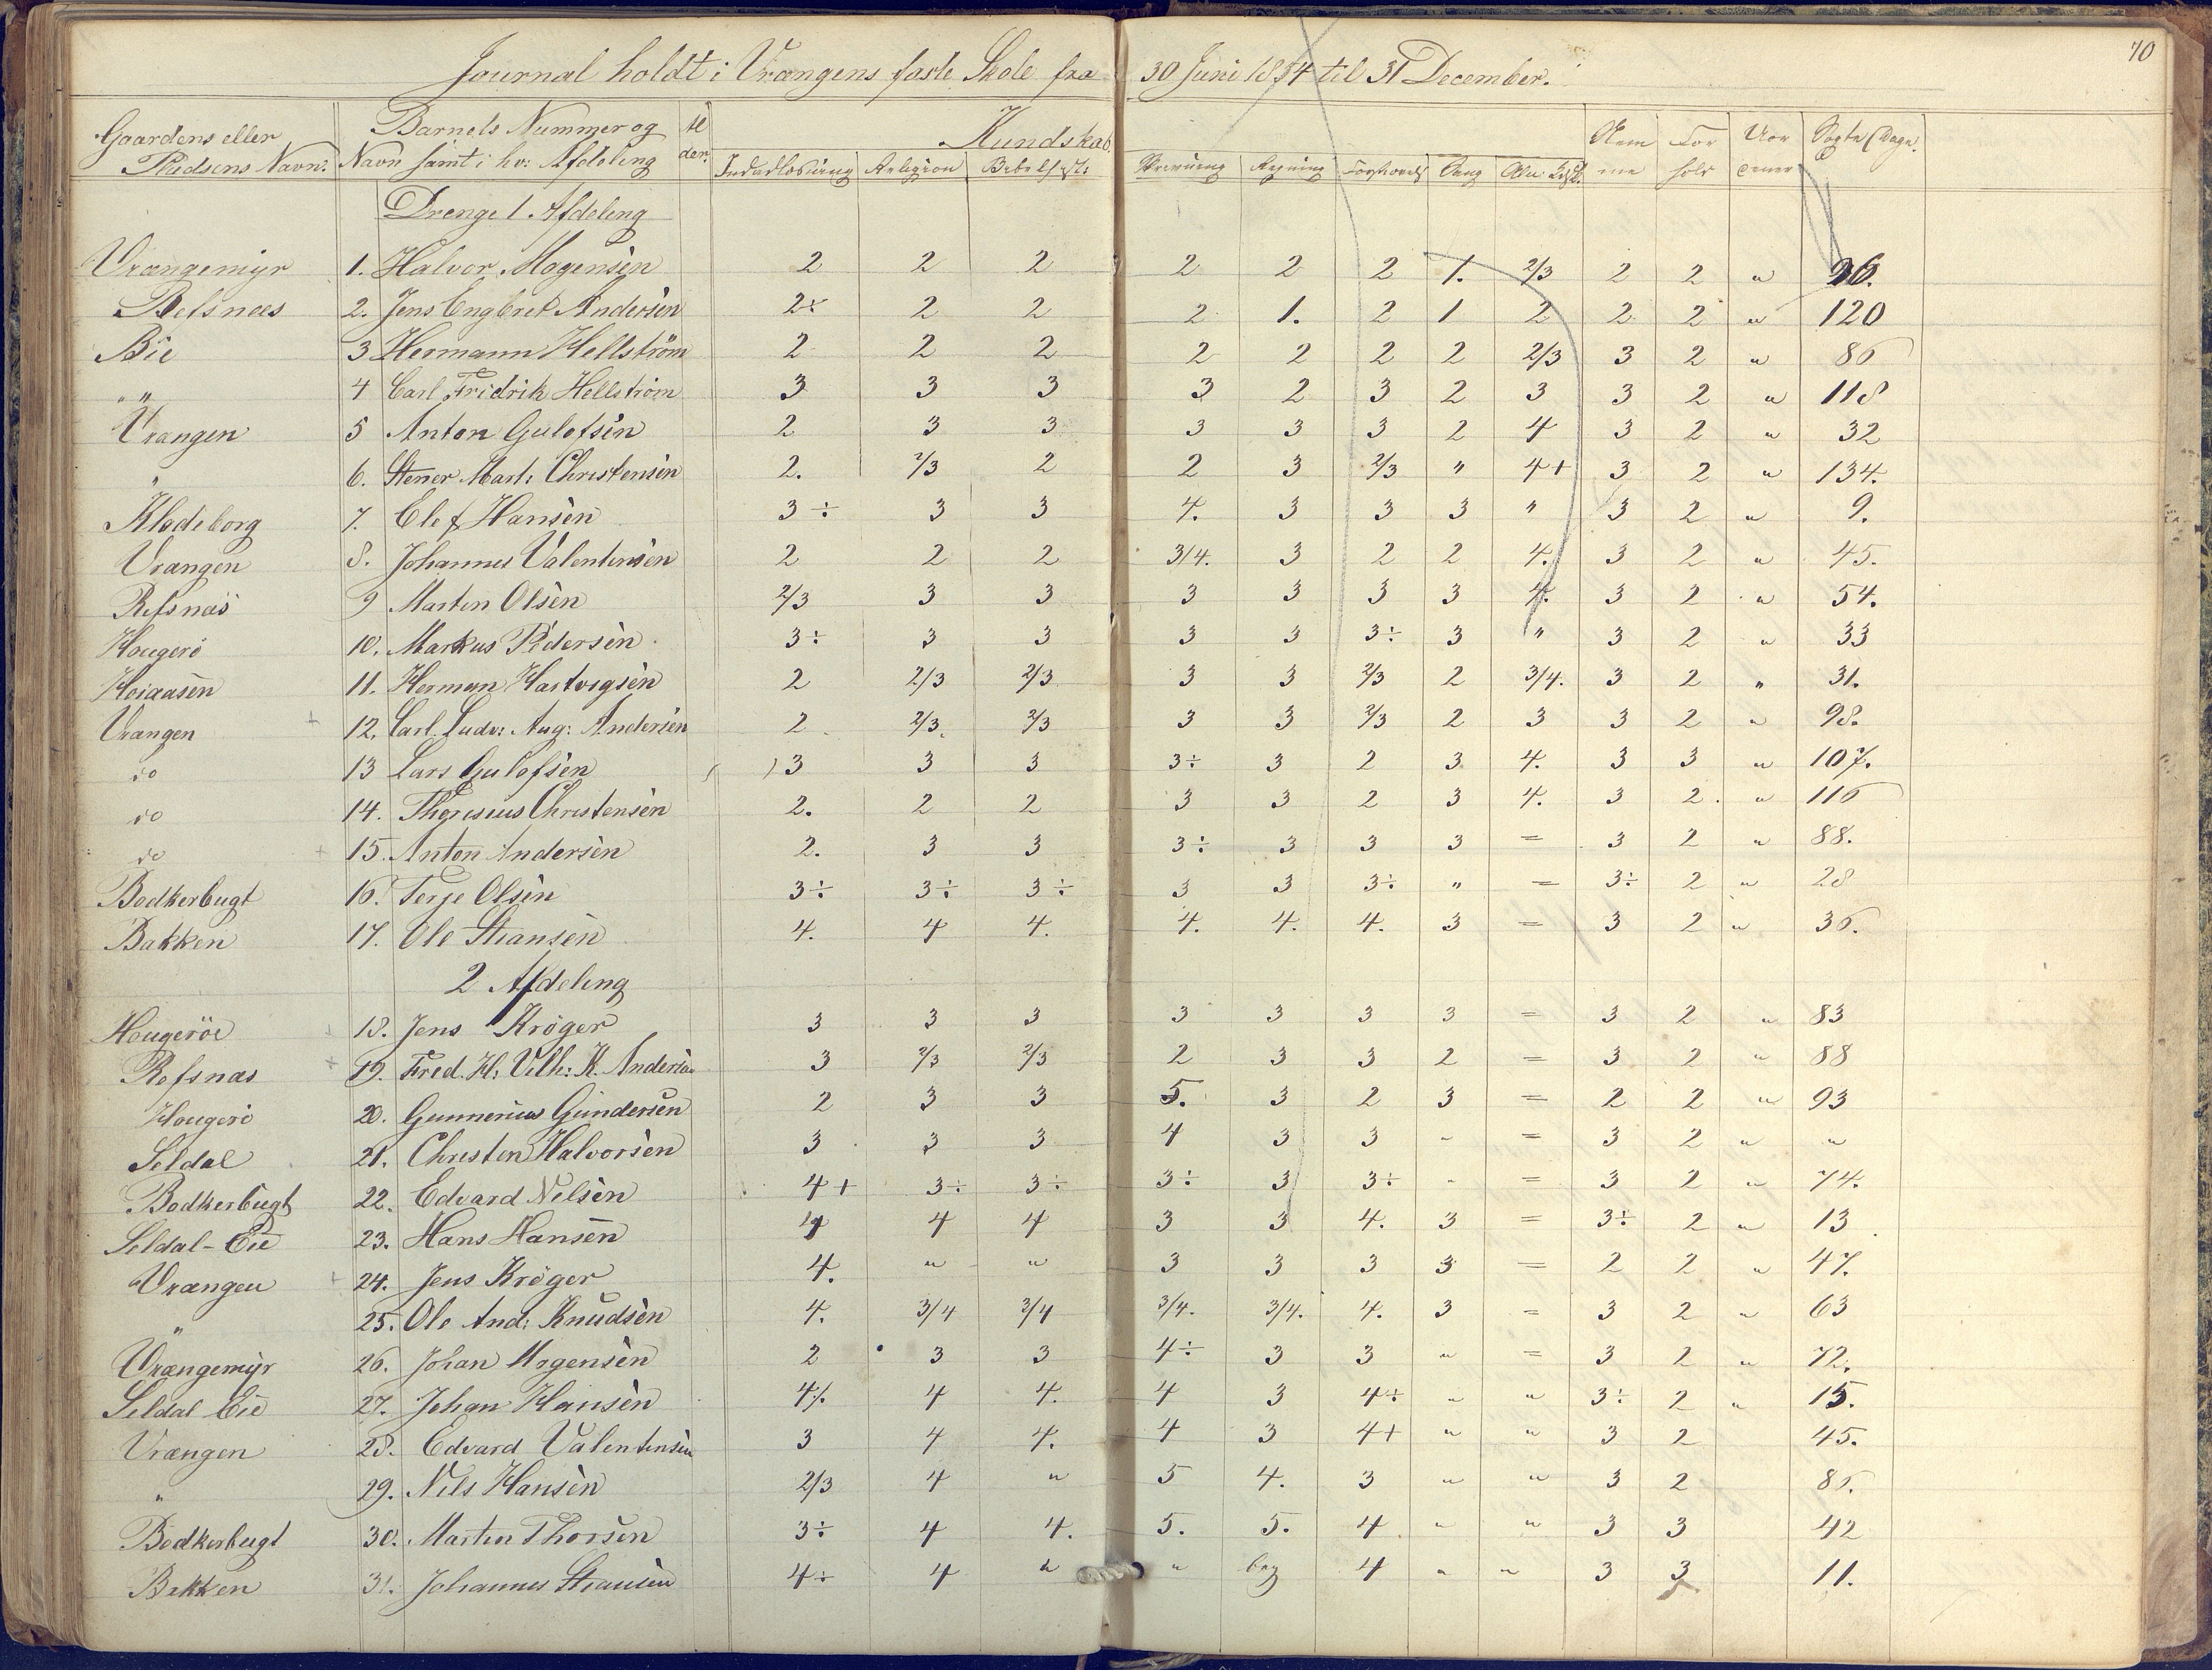 70
Journal holdt i Vrængens faste Skole fra 30 Juni 1854 til 31 December.
Gaardens eller Pladsens Navn. Barnets Nummer og Navn samt i hv: Afdeling Al der. Kundskab. Nem me For hold Vor Søgte (Dage.
Indadlæsning Religion Bibelhist: Skrivning Regning Forstands Sang
Drenge 1. Afdeling
Vrængemyr 1. Halvor Mogensen 2 2 2 2 2 2 1. 2/3 2 2 " 96.
Refsnæs 2. Jens Engbret Andersen 2÷ 2 2 2 1. 2 1 2 2 2 " 120
Bie 3 Hermann Hellström 2 2 2 2 2 2 2 2/3 3 2 " 86
" " 4 Carl Fridrik Hellström 3 3 3 3 2 3 2 3 3 2 " 118
Vrængen 5 Anton Gulofsen 2 3 3 3 3 3 2 4 3 2 " 32
" 6. Stener Mart: Christensen 2. 2/3 2 2 3 2/3 " 4+ 3 2 " 134.
Klodeborg 7. Elef Hansen 3÷ 3 3 4. 3 3 3 " 3 2 " 9.
Vrangen 8. Johannes Valentinsen 2 2 2 3/4. 3 2 2 4. 3 2 " 45.
Refsnæs 9 Marten Olsen 2/3 3 3 3 3 3 3 4. 3 2 " 54.
Hougerö 10. Markus Pedersen 3÷ 3 3 3 3 3÷ 3 " 3 2 " 33
Heiaasen 11. Herman Hartvigsen 2 2/3 2/3 3 3 2/3 2 3/4. 3 2 " 31.
Vrangen 12. Carl. Ludv: Aug: Andersen 2 2/3. 2/3 3 3 2/3 2 3 3 2 " 98.
do 13 Lars Gulofsen 3 3 3 3÷ 3 2 3 4. 3 3 " 107.
do 14. Thorinius Christensen 2. 2 2 3 3 2 3 4. 3 2. " 116
do 15. Anton Andersen 2. 3 3 3÷ 3 3 3 = 3 2 " 88.
Bødkerbugt 16. Terje Olsen 3÷ 3÷ 3÷ 3 3 3÷ " = 3÷ 2 " 28
Bakken 17. Ole Stiansen 4. 4 4. 4. 4. 4. 3 = 3 2 " 36.
2 Afdeling
Hougeröe 18. Jens Kröger 3 3 3 3 3 3 3 = 3 2 " 83
Refsnæs 19. Fred. H: Vilh: K. Andersen 3 2/3 2/3 2 3 3 2 = 3 2 " 88
Hougerö 20. Gunnerius Gundersen 2 3 3 5. 3 2 3 = 2 2 " 93
Seldal 21. Christen Halvorsen 3 3 3 4 3 3 " = 3 2 " "
Bødkerbugt 22. Edvard Nelsen 4+ 3÷ 3÷ 3÷ 3 3÷ " = 3 2 " 74.
Seldal-Eie 23. Hans Hansen 4 4 4 3 3 4. 3 = 3÷ 2 " 13
Vrængen 24. Jens Kröger 4. " " 3 3 3 3 = 2 2 " 47.
" 25. Ole And: Knudsen 4. 3/4 3/4 3/4. 3/4. 4. 3 = 3 2 " 63
Vrængemyr 26. Johan Mogensen 2 3 3 4÷ 3 3 " = 3 2 " 72.
Seldal Eie 27. Johan Hansen 4÷ 4 4. 4 3 4÷ " " 3÷ 2 " 15.
Vrængen 28. Edvard Valentinsen 3 4 4. 4 3 4+ " " 3 2 45.
" 29. Nils Hansen 2/3 4 " 5 4. 3 " " 3 2 86.
Bødkerbugt 30. Marten Thorsen 3÷ 4 4. 5. 5. 4 " " 3 3 42
Bakken 31. Johannes Stiansen 4÷ 4 " " beg 4 " " 3 3 11.